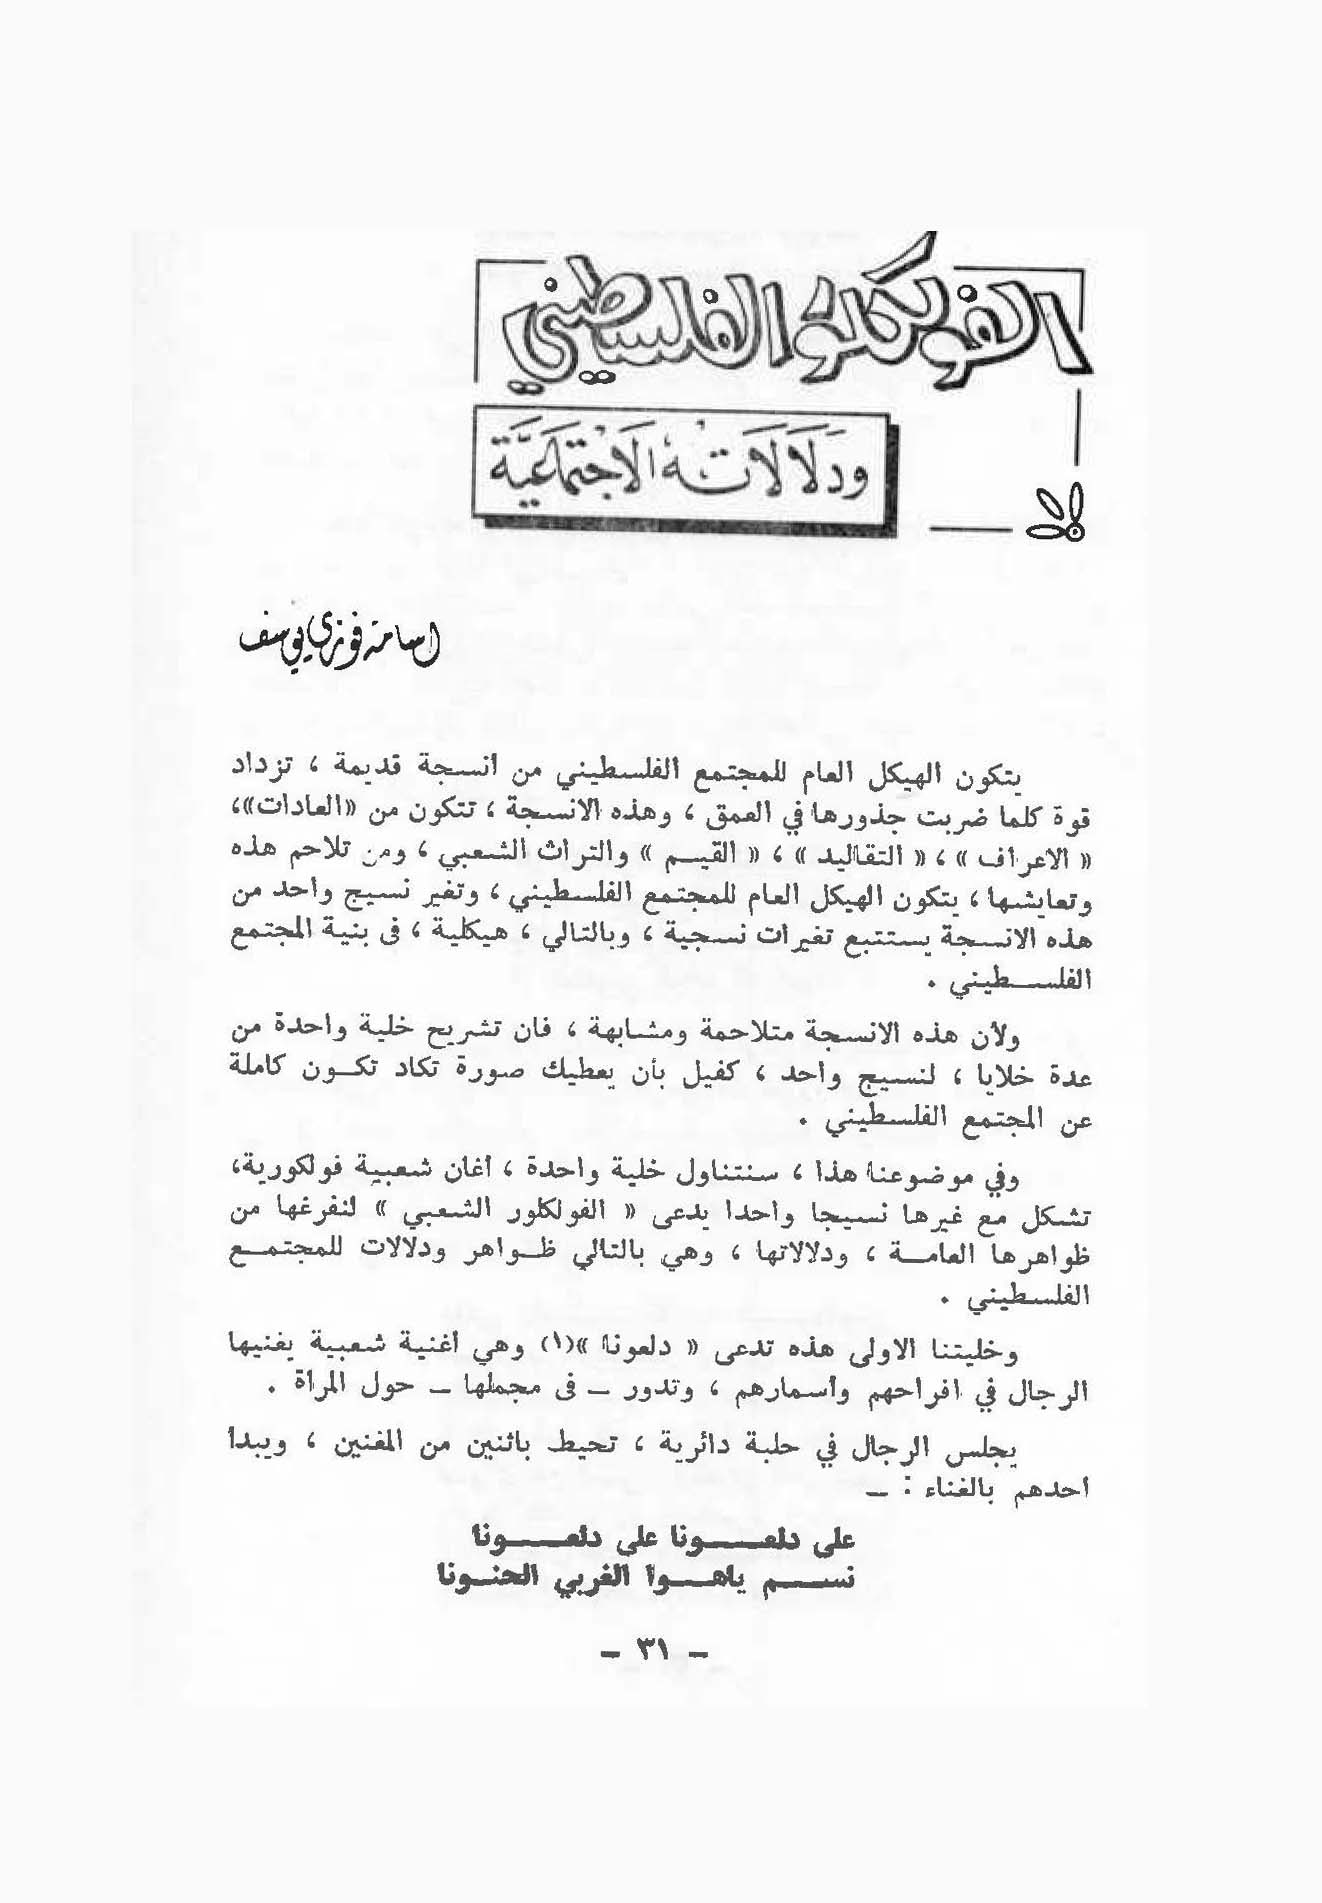 الفولكلور الفلسطيني
ودلالاته الاجتماعية
اسامة فوزي يوسف
يتكون الهيكل العام للمجتمع الفلسطيني من أنسجة قديمة ، تزداد
قوة كلما ضربت جذورها في العمق ، وهذه الانسجة ، تتكون من «العادات»،
« الاعراف » ، « التقاليد » ، « القيــم » والتراث الشعبي ، ومن تلاحم هذه
وتعايشها ، يتكون الهيكل العام للمجتمع الفلسطيني ، وتغير نسيج واحد من
هذه الانسجة يستتبع تغيرات نسجية ، وبالتالي ، هيكلية ، فى بنية المجتمع
الفلســـطيني .
ولأن هذه الانسجة متلاحمة ومشابهة ، فان تشريح خلية واحدة من
عدة خلايا ، لنسيج واحد ، كفيل بأن يعطيك صورة تكاد تكــون كاملة
عن المجتمع الفلسطيني .
وفي موضوعنا هذا ، سنتناول خلية واحدة ، أغان شعبية فولكورية،
تشكل مع غيرها نسيجا واحدا يدعى « الفولكلور الشعبي » لنفرغها من
ظواهرها العامــة ، ودلالاتها ، وهي بالتالي ظــواهر ودلالات للمجتمــع
الفلسطيني .
وخليتنا الاولى هذه تدعى « دلعونا »(١) وهي أغنية شعبية يغنيها
الرجال في افراحهم وأسمارهم ، وتدور ــ فى مجملها ــ حول المرأة .
يجلس الرجال في حلبة دائرية ، تحيط باثنين من المغنين ، ويبدأ
احدهم بالغناء : ــ
على دلعــــونا على دلعــــونا
نســـم ياهـــوا الغربي الحنــونا
ــ ٣١ ــ